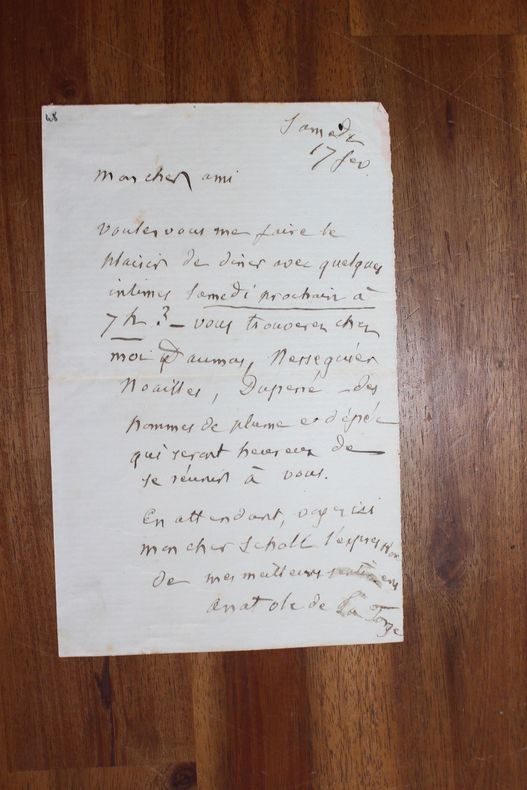 48
Samedi
17 fev
Mon cher ami
voulez vous me faire le
plaisir de diner avec quelques
intimes samedi prochain à
7 h. ? – vous trouverez chez
moi Daumas, Nesseguier
Noailles, Duperré – des
hommes de plume et d'épée
qui seront heureux de
se réunir à vous.
En attendant, voyez ici
mon cher Scholl l'expression
de mes meilleurs sentimens
anatole de La Forge